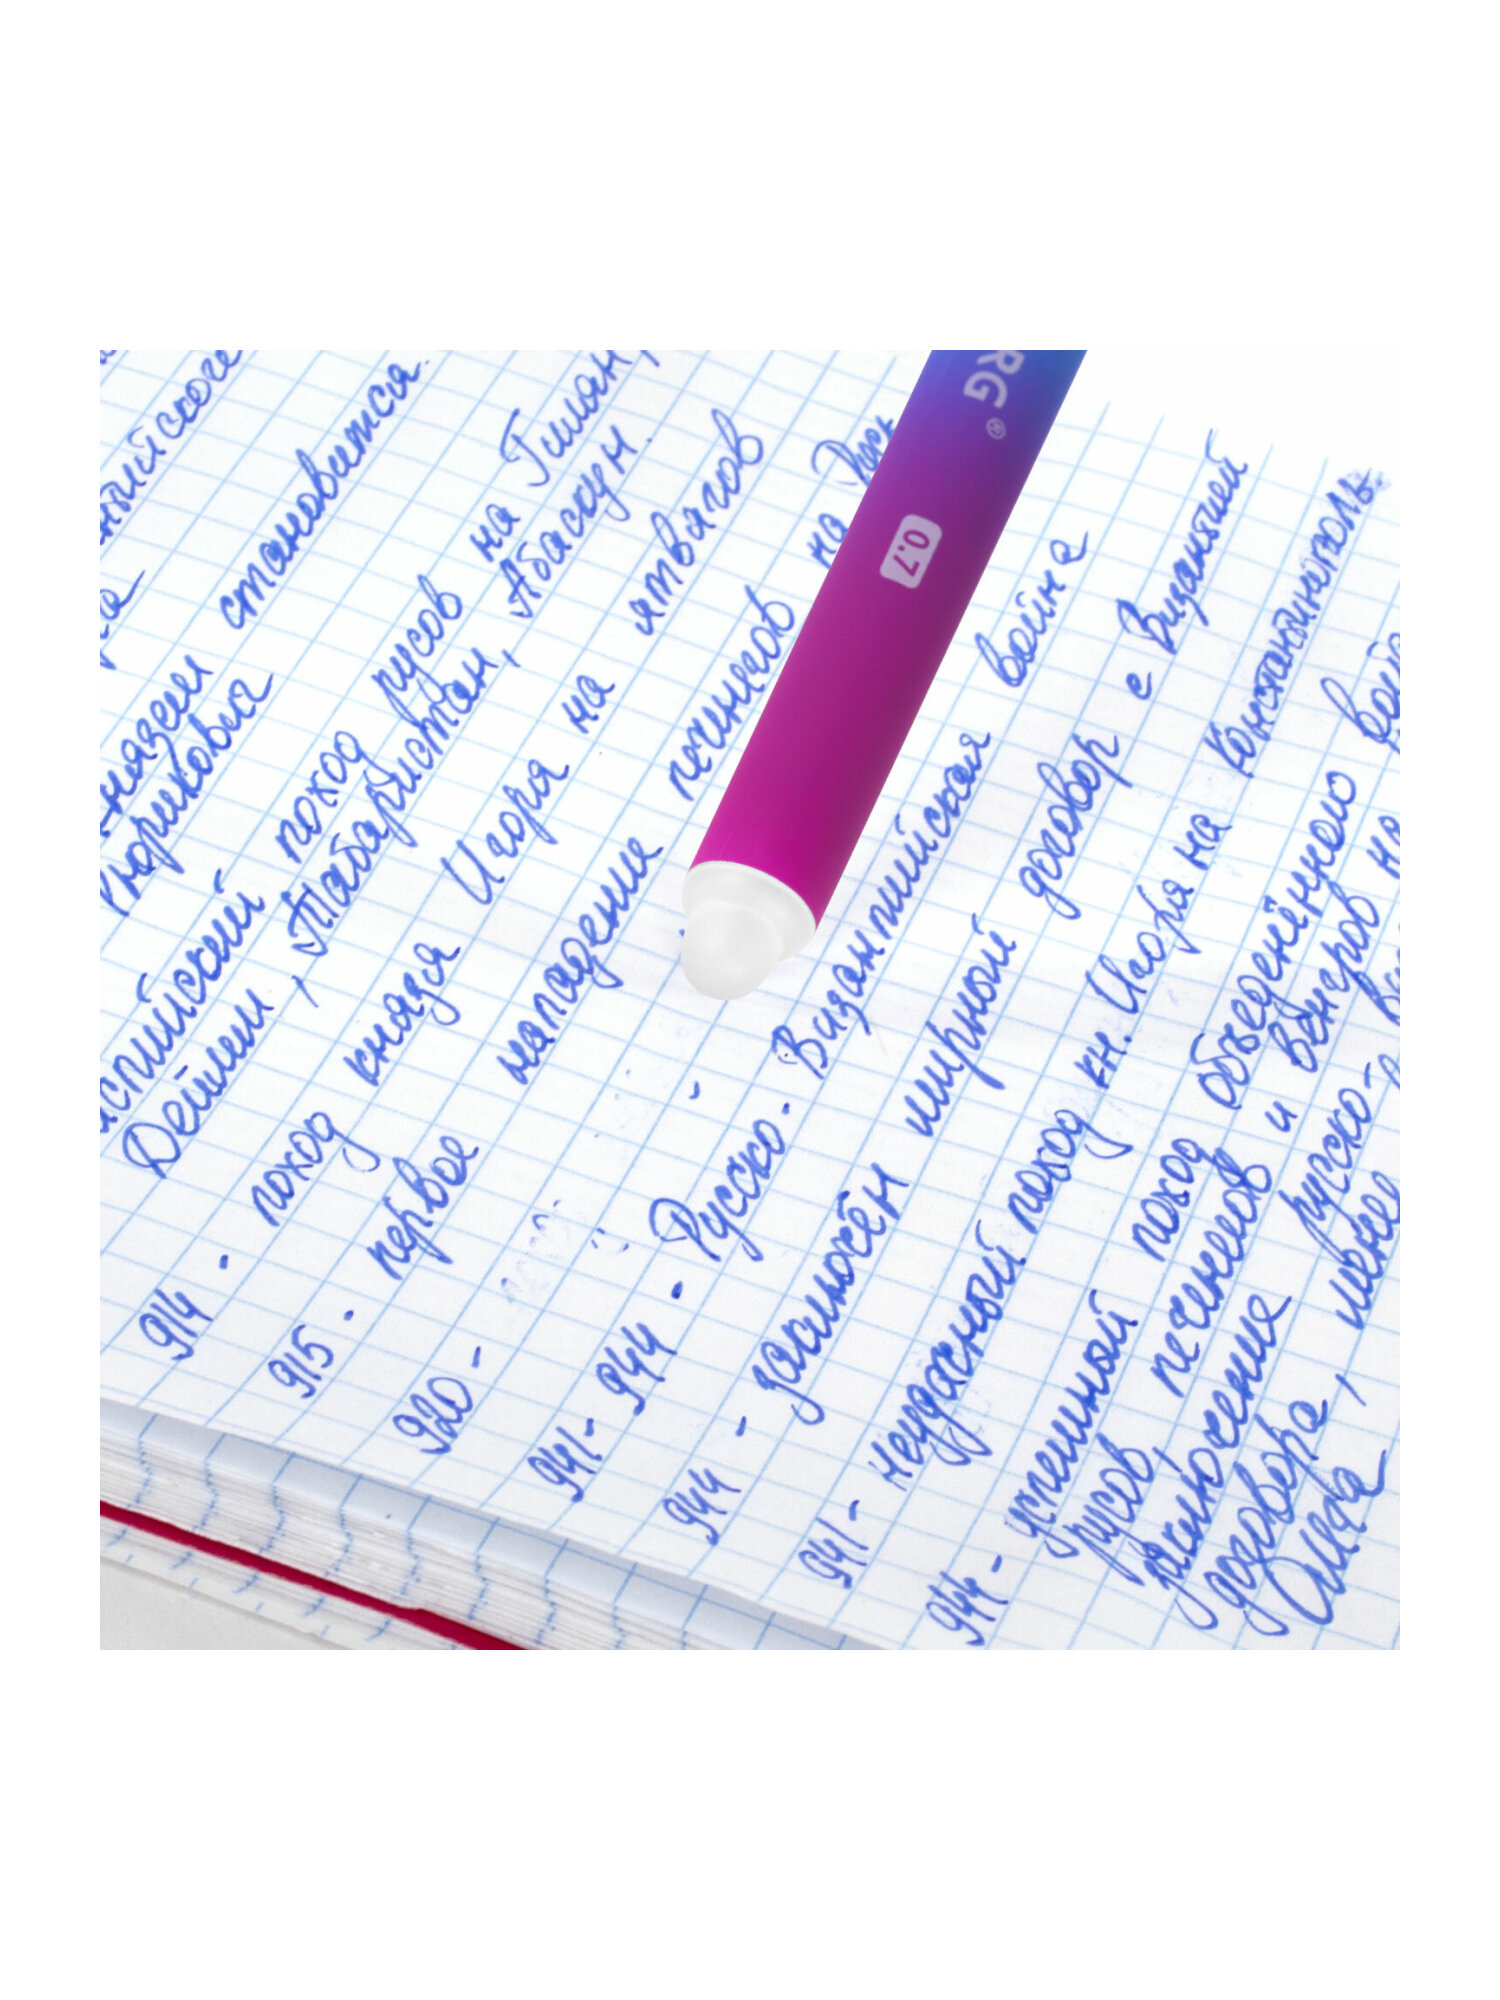 становится.
Рюриковича
поход русов на Гилян,
Дейлем, Табаристан, Абаскун.
914 - поход князя Игоря на ятвягов
915 - первое нападение печенегов на Русь
920 -
941- 944 - Русско- Византийская война
944 - заключён мирный договор с Византией
941 - неудачный поход кн. Игоря на Константинополь.
944 - успешный поход объеденённого
русов, печенегов и венгров на
заключение русско-
договора, менее
RG®
0.7